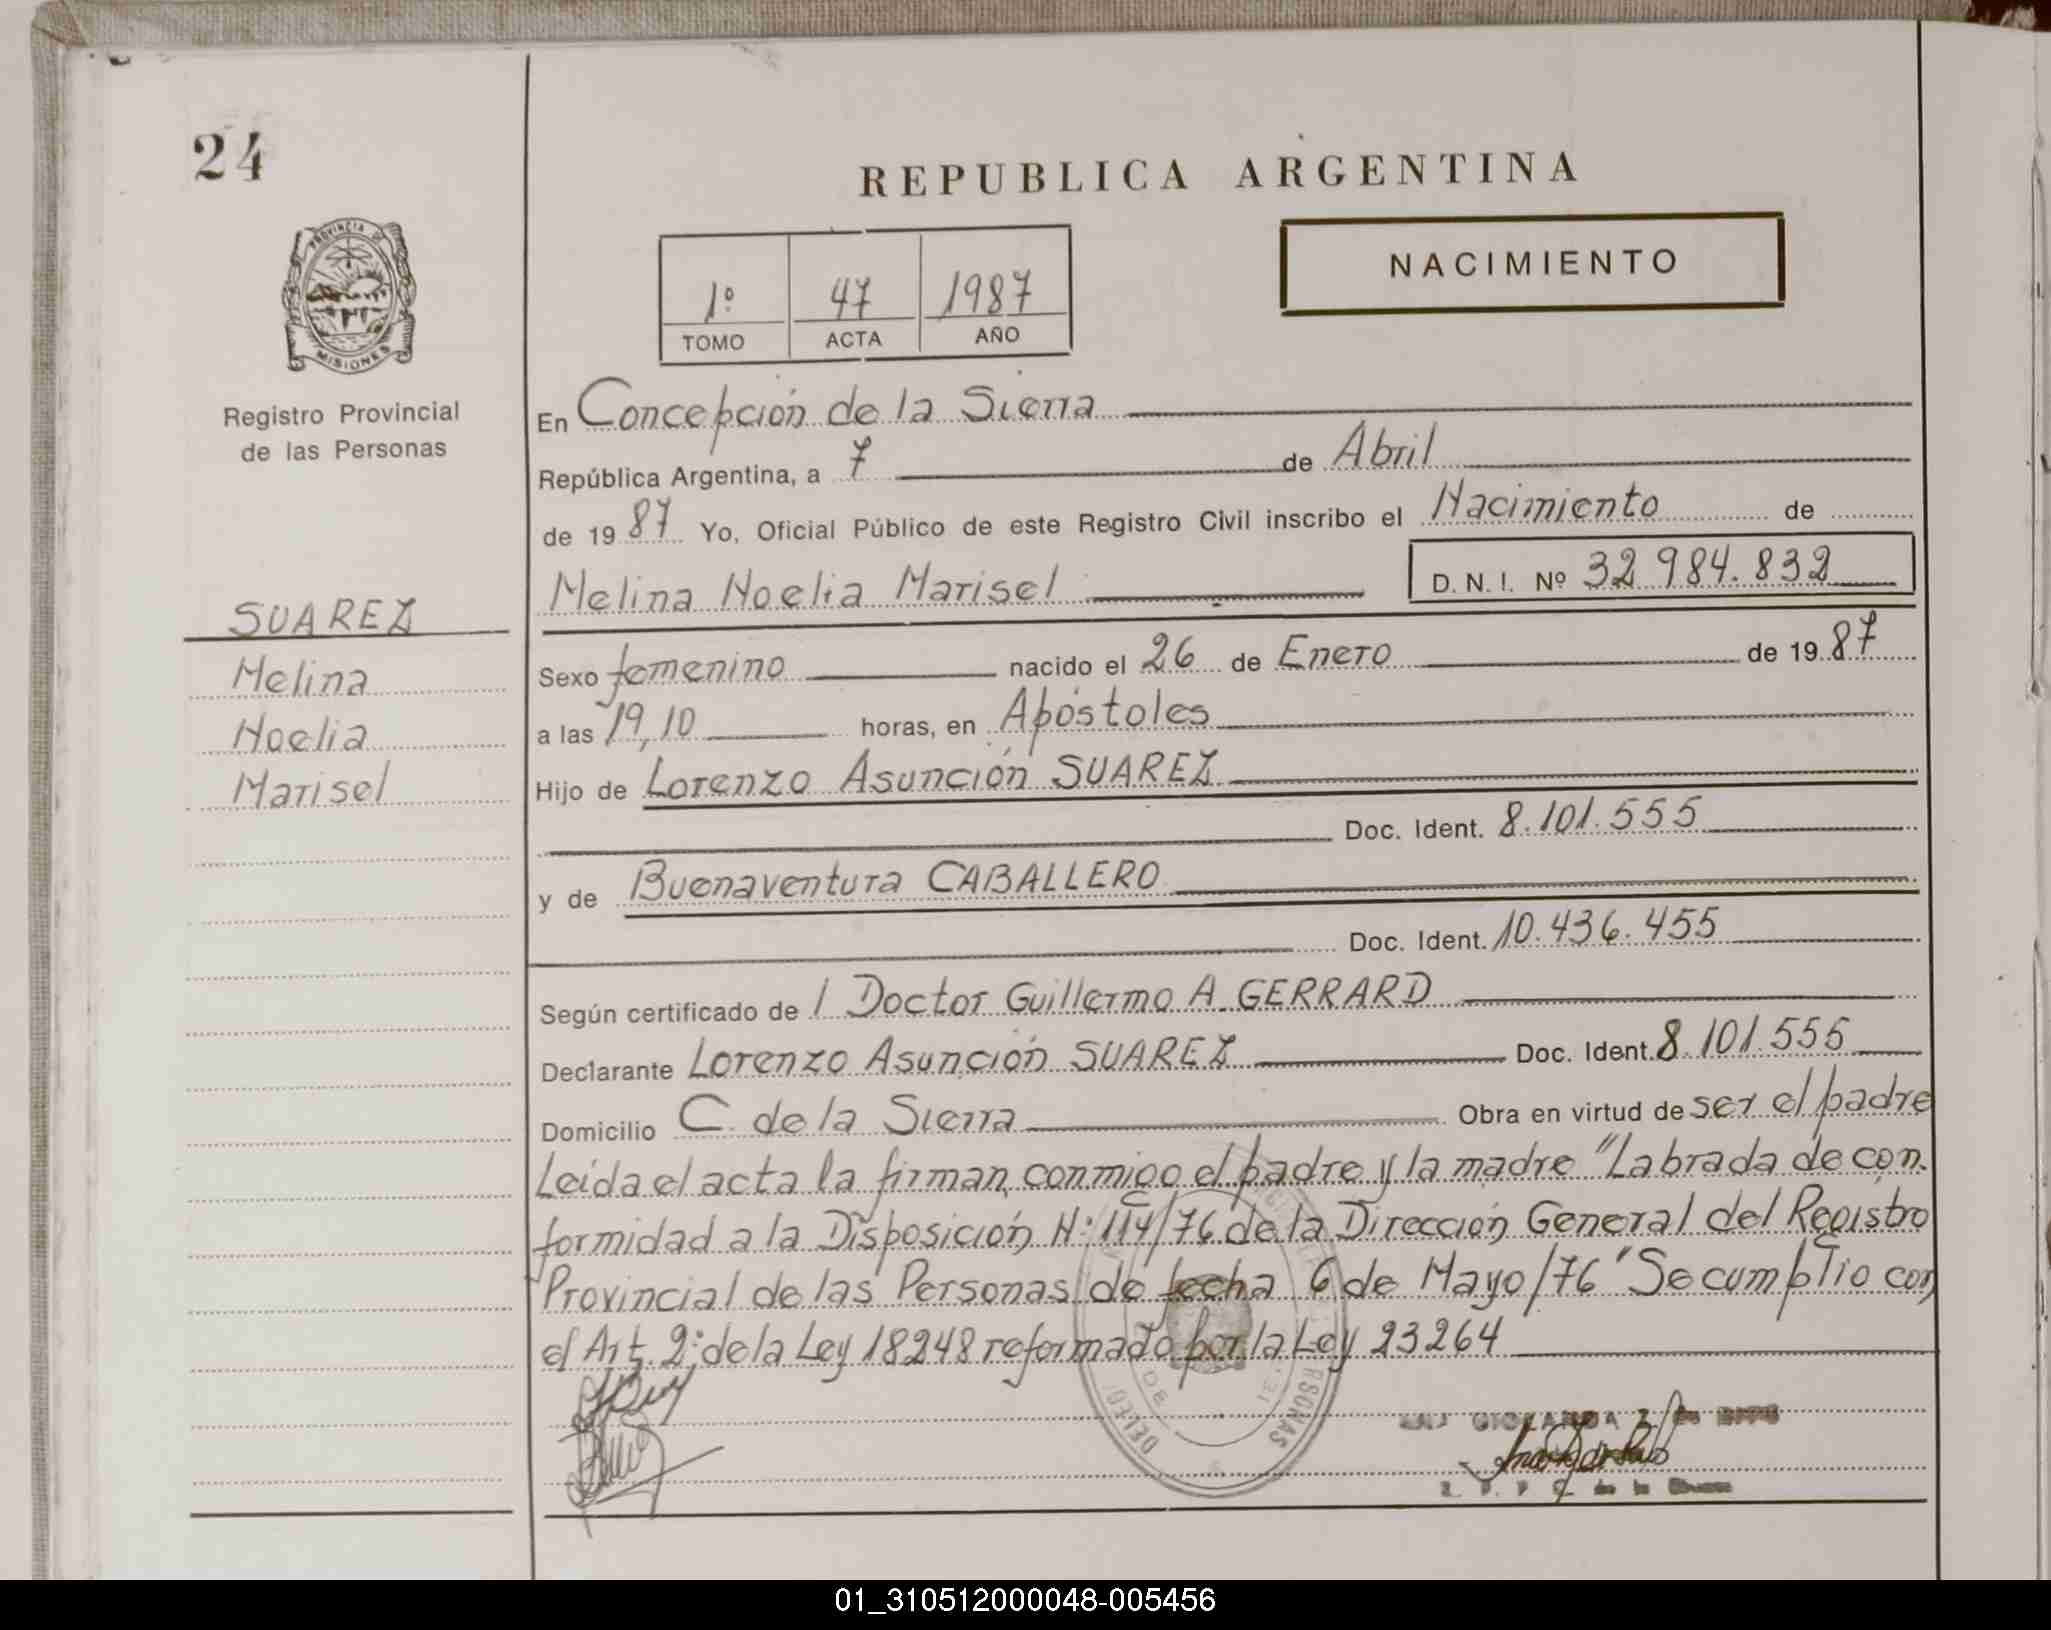 24
REPUBLICA ARGENTINA
PROVINCIA DE
MISIONES
NACIMIENTO
1º 47 1987
TOMO ACTA AÑO
Registro Provincial
de las Personas
SUAREZ
Melina
Noelia
Marisel
En Concepción de la Sierra
República Argentina, a 7 de Abril
de 19 87 Yo, Oficial Público de este Registro Civil inscribo el Nacimiento de
Melina Noelia Marisel D. N. I. Nº 32 984.832
Sexo femenino nacido el 26 de Enero de 19 87
a las 19,10 horas, en Apóstoles
Hijo de Lorenzo Asunción SUAREZ
Doc. Ident. 8.101.555
y de Buenaventura CABALLERO
Doc. Ident. 10.436.455
Según certificado de / Doctor Guillermo A. GERRARD
Declarante Lorenzo Asunción SUAREZ Doc. Ident. 8.101.555
Domicilio C. de la Sierra Obra en virtud de ser el padre
Leida el acta la firman conmigo el padre y la madre "Labrada de con.
formidad a la Disposición N: 114/76 de la Dirección General del Registro
Provincial de las Personas de fecha 6 de Mayo/76" Se cumplio con
el Art. 2: de la Ley 18248 reformado por la Ley 23264
01_310512000048-005456